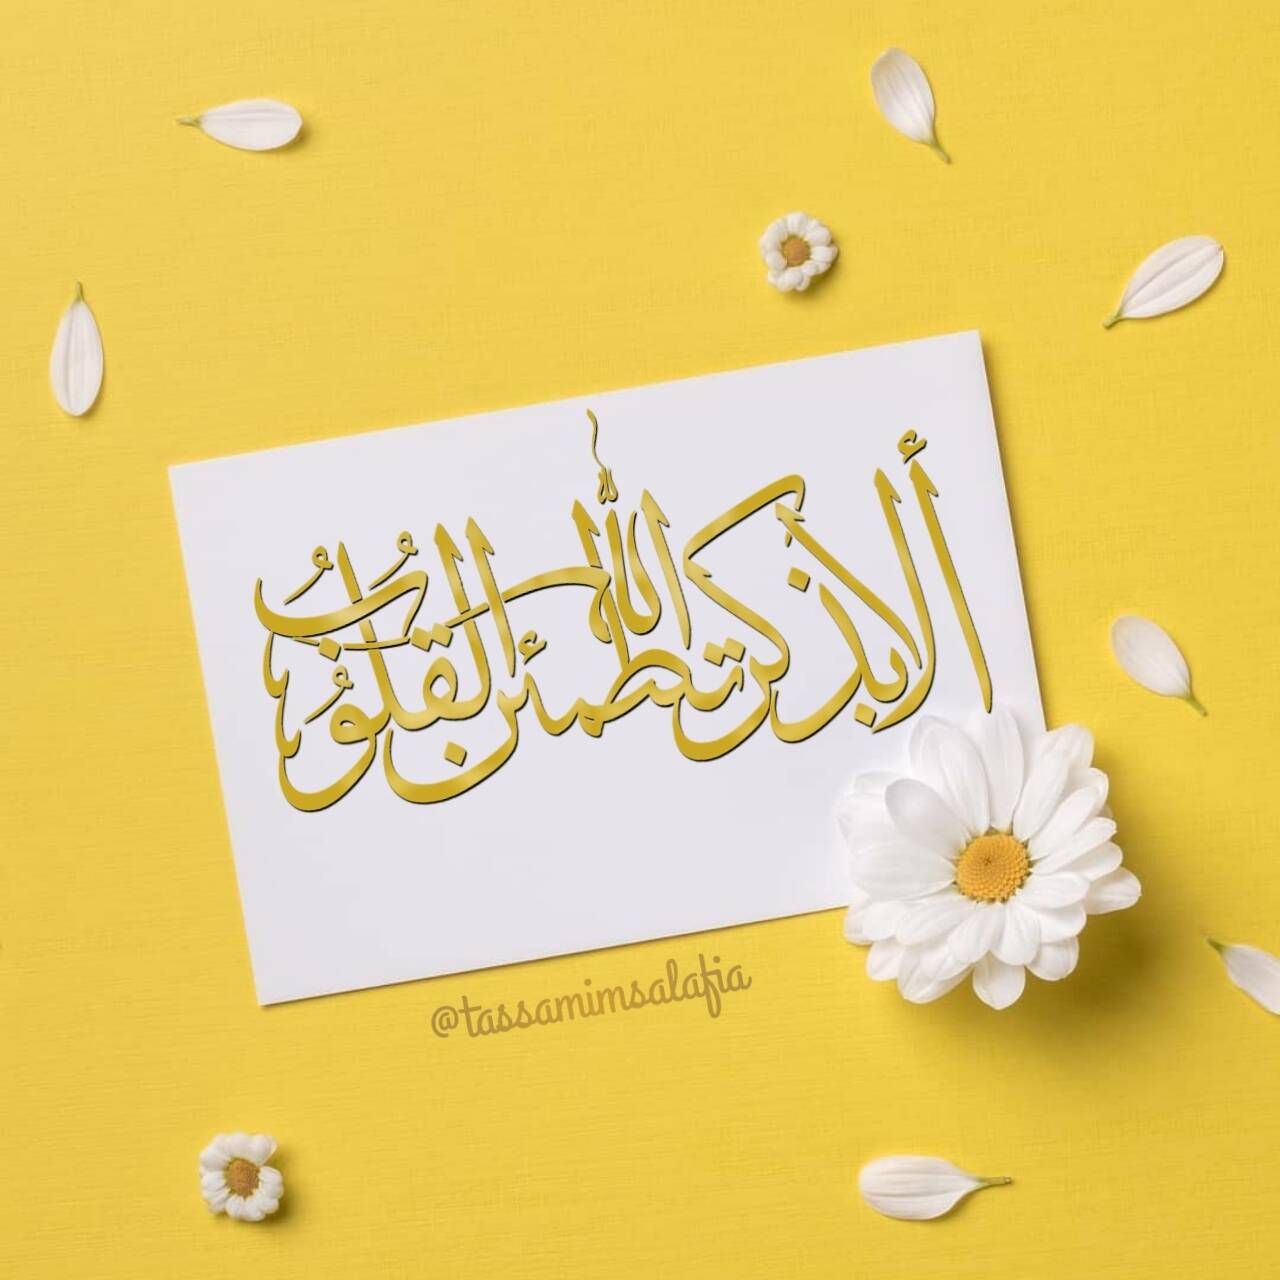 ألا بذكر الله تطمئن القلوب
@tassamimsalafia